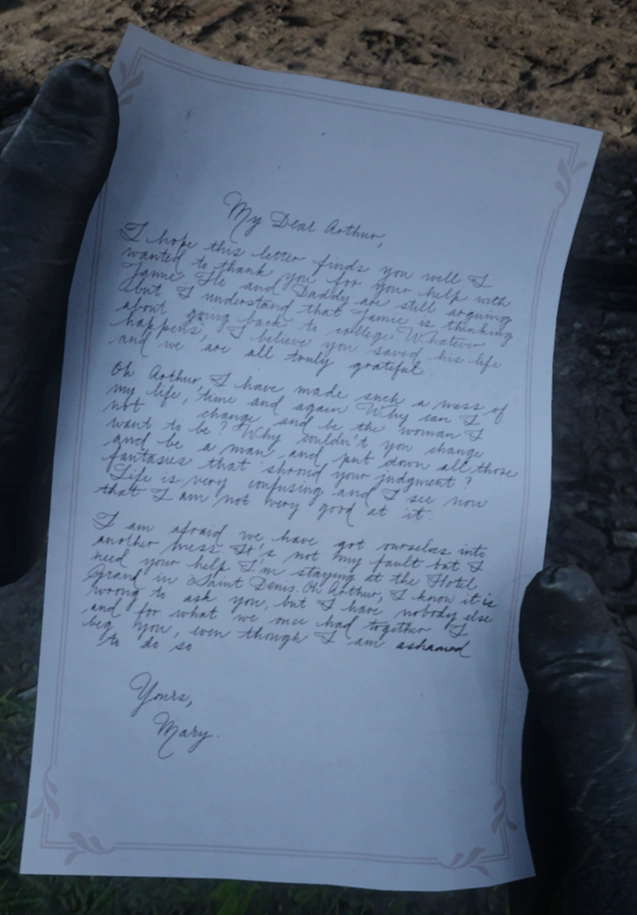 My Dear Arthur,
I hope this letter finds you well I
wanted to thank you for your help with
Jamie. He and Daddy are still arguing
but I understand that Jamie is thinking
about going back to college. Whatever
happens, I believe you saved his life
and we are all truly grateful.
Oh Arthur, I have made such a mess of
my life, time and again. Why can I
not change and be the woman I
want to be? Why couldn't you change
and be a man and put down all those
fantasies that shroud your judgment?
Life is very confusing and I see now
that I am not very good at it.
I am afraid we have got ourselves into
another mess. It's not my fault but I
need your help I'm staying at the Hotel
Grand in Saint Denis. Oh Arthur, I know it is
wrong to ask you, but I have nobody else
and for what we once had together I
beg you, even though I am ashamed
to do so
Yours,
Mary.